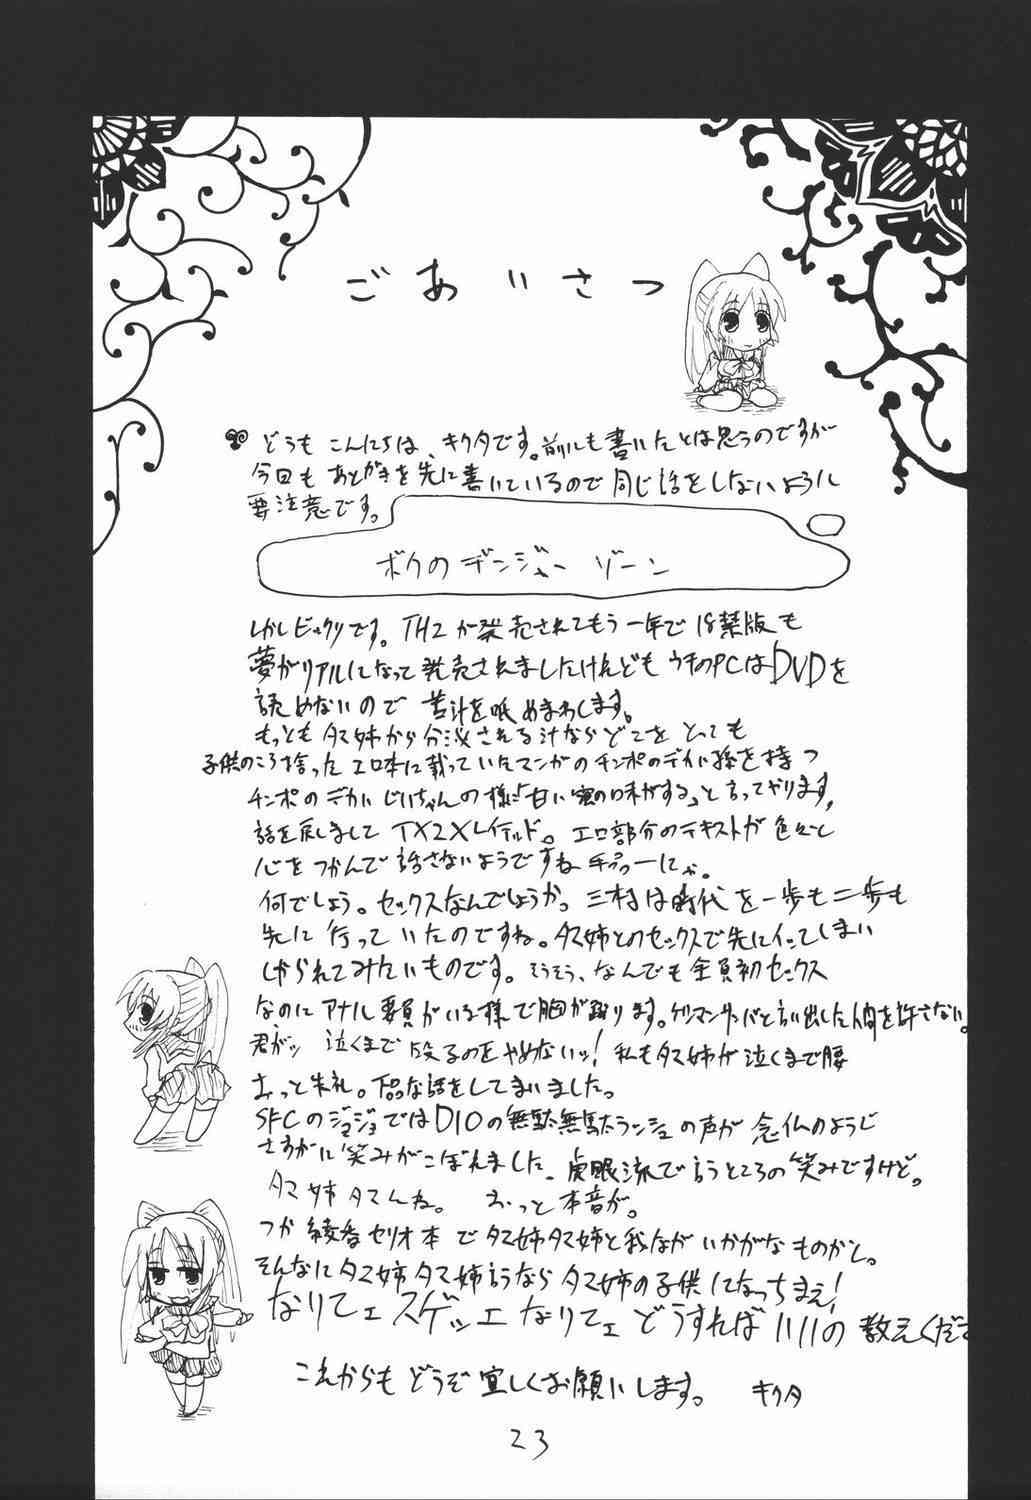 ごあいさつ
どうも こんにちは、キクタです。前にも書いたとは思うのですが
今回も あとがきを先に書いているので 同じ話をしないように
要注意です。
ボクの デンジャー ゾーン
しかしビックリです。TH2が発売されてもう一年で18禁版も
夢がリアルになって発売されましたけれども ウチのPCはDVDを
読めないので 苦汁を舐めまわします。
もっとも タマ姉から分泌される汁ならどこをとっても
子供のころ拾ったエロ本に載っていたマンガのチンポのデカい孫を持つ
チンポのデカいじいちゃんの様に「甘い蜜の味がする」と言ってやります。
話を戻しまして TX2X レイテルド。エロ部分のテキストが色々と
心をつかんで話さないようですね
何でしょう。セックスなんでしょうか。三村は時代を一歩も二歩も
先に行っていたのですね。タマ姉とのセックスで先にイッてしまい
しかられてみたいものです。そうそう、なんでも全員初セックス
なのに アナル要員がいる様で胸が踊ります。ゲリマンサーバと言い出した人間を許さない。
君がッ 泣くまで 殴るのをやめないッ! 私もタマ姉が泣くまで腰
おっと失礼。下品な話をしてしまいました。
SFCのジョジョではDIOの無駄無駄ラッシュの声が念仏のようで
さすがに笑みがこぼれました。虎眼流で言うところの笑みですけど。
タマ姉タマんね。 おっと本音が。
つか 綾香セリオ本でタマ姉タマ姉と我ながいかがなものかと。
そんなにタマ姉タマ姉言うならタマ姉の子供になっちまえ!
なりてェ スゲッェ なりてェ どうすればいいの 教えくださ
これからも どうぞ 宜しくお願いします。 キクタ
23